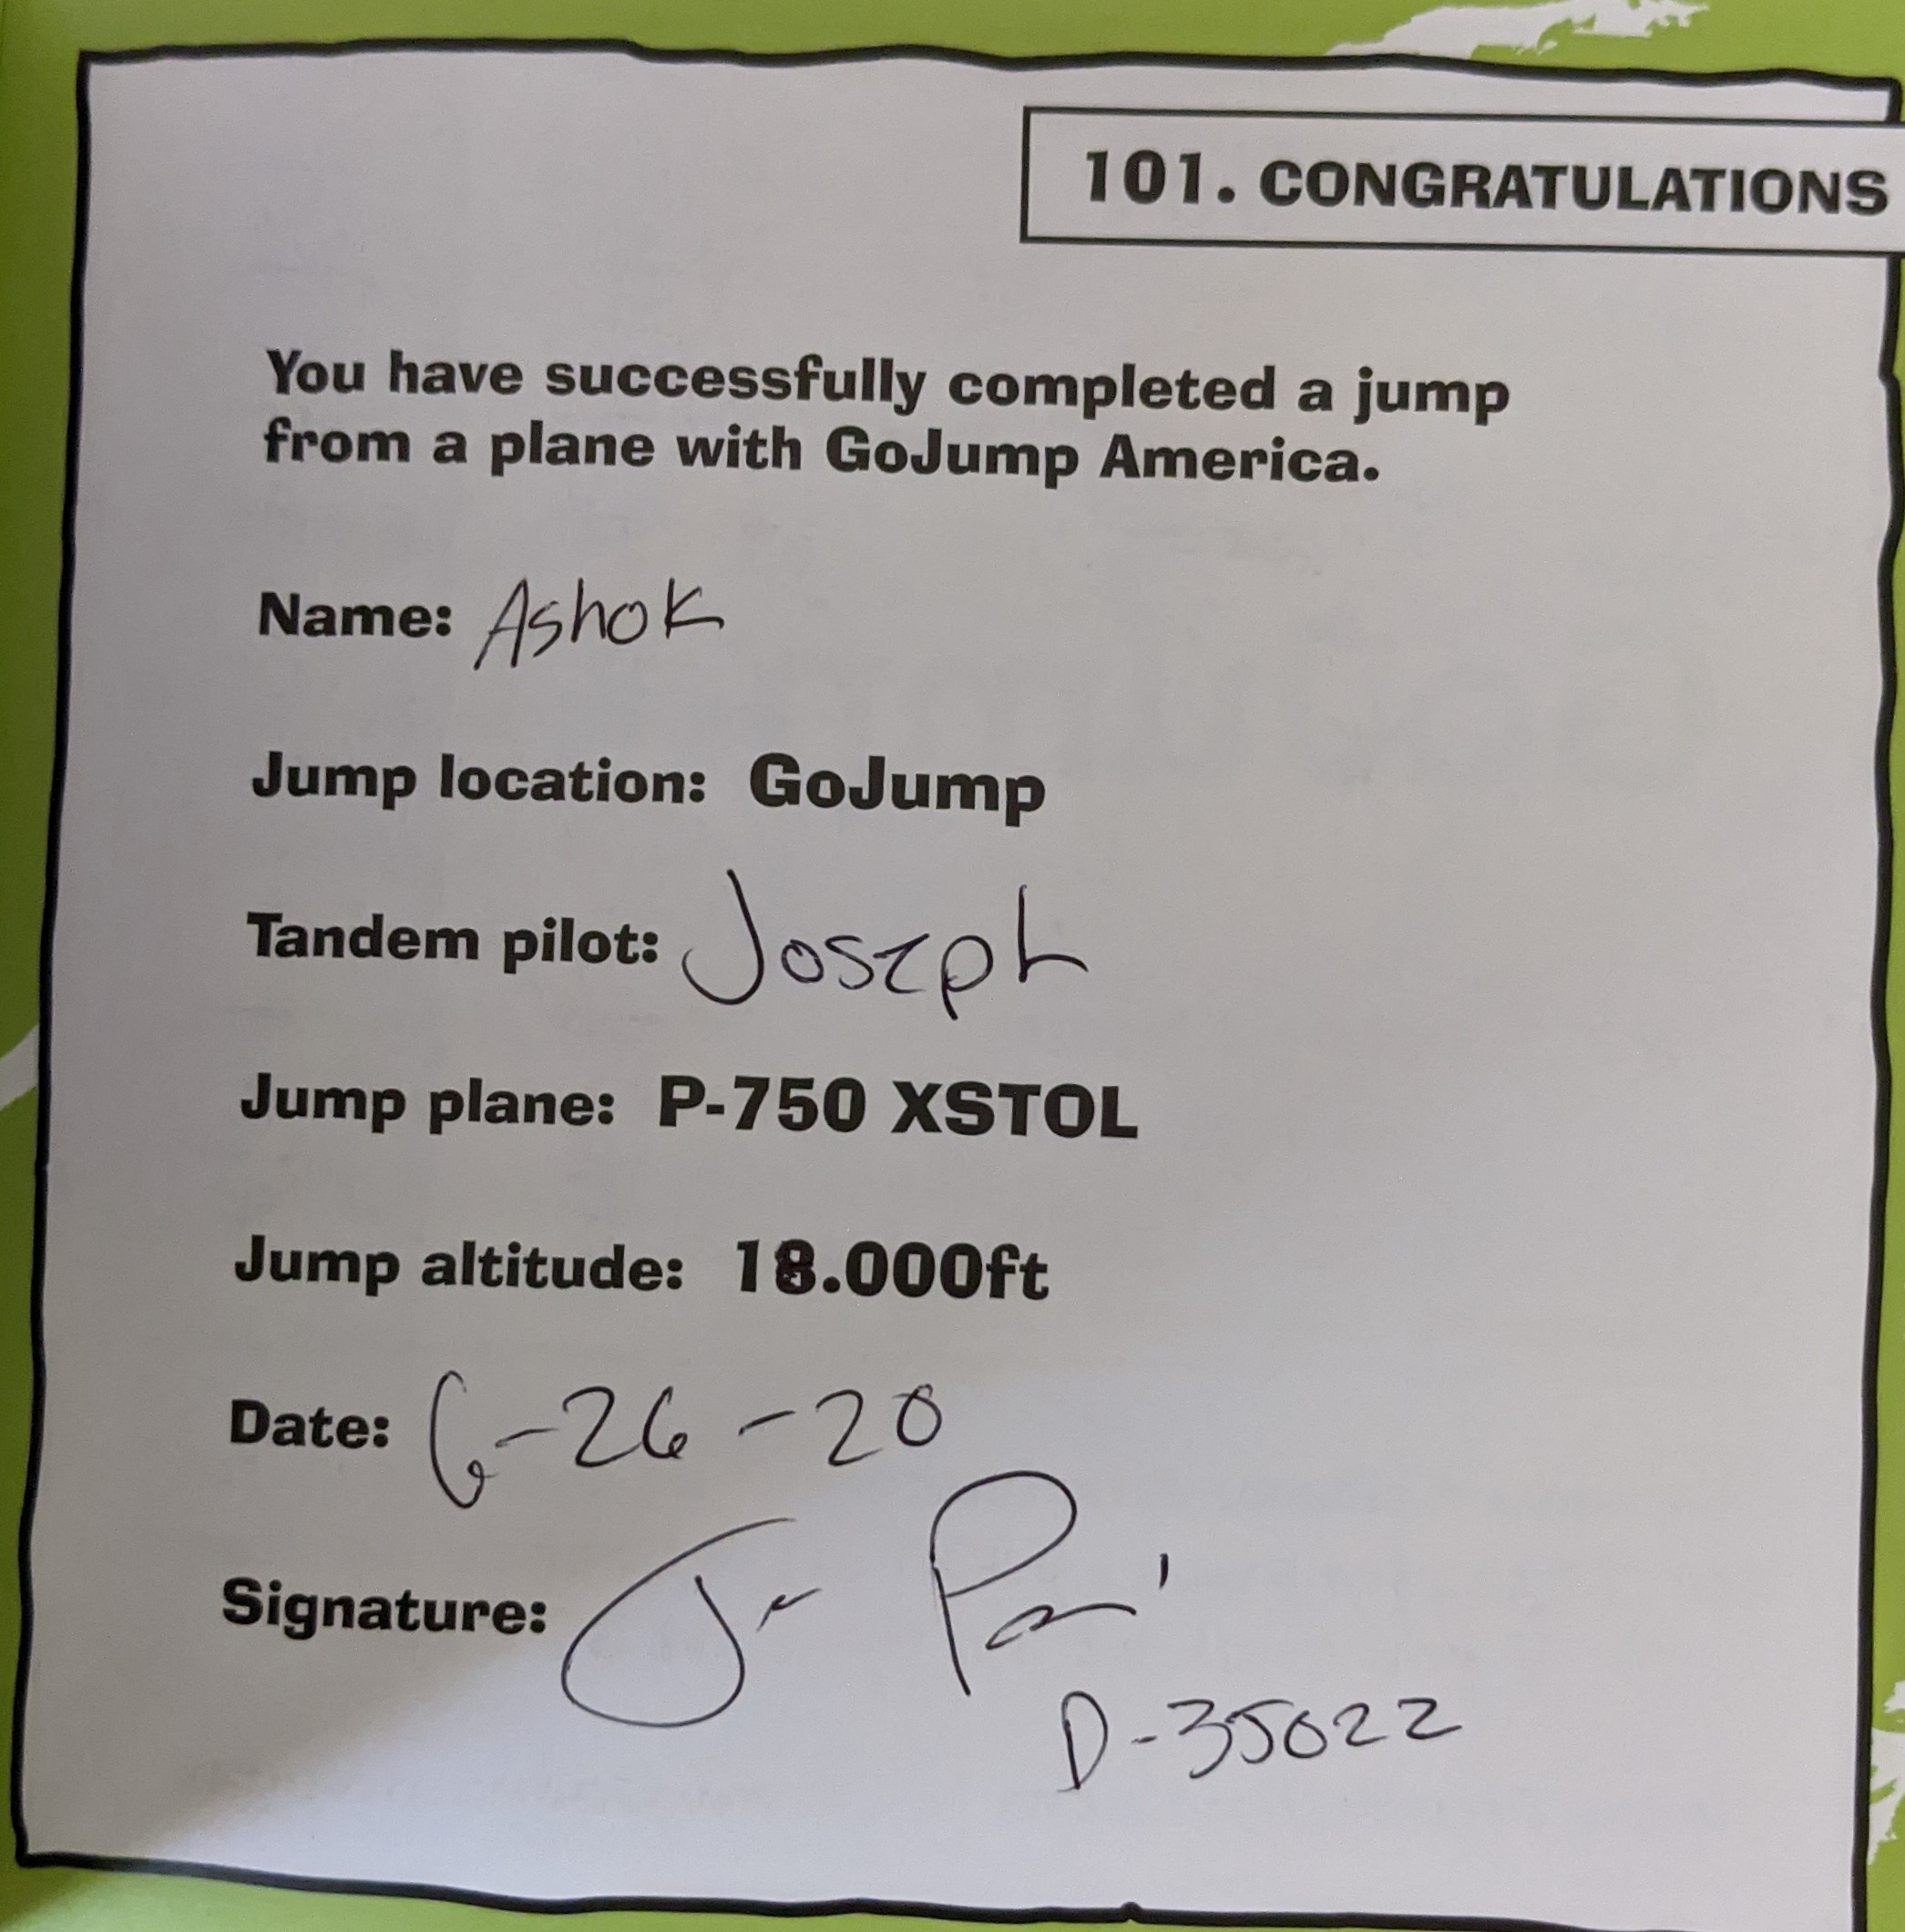 101. CONGRATULATIONS
You have successfully completed a jump
from a plane with GoJump America.
Name: Ashok
Jump location: GoJump
Tandem pilot: Joseph
Jump plane: P-750 XSTOL
Jump altitude: 18.000ft
Date: 6-26-20
Signature:
D-35022